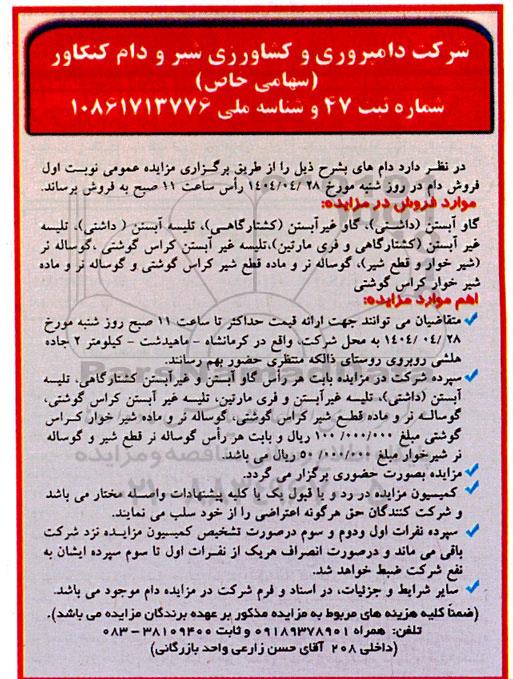 شرکت دامپروری و کشاورزی شیر و دام کنگاور
(سهامی خاص)
شماره ثبت ۴۷ و شناسه ملی ۱۰۸۶۱۷۱۳۷۷۶
در نظر دارد دام های بشرح ذیل را از طریق برگزاری مزایده عمومی نوبت اول
فروش دام در روز شنبه مورخ ۲۸ /۱۴۰۴/۰۴ رأس ساعت ۱۱ صبح به فروش برساند.
موارد فروش در مزایده:
گاو آبستن (داشتی)، گاو غیرآبستن (کشتارگاهی)، تلیسه آبستن ( داشتی)، تلیسه
غیر آبستن (کشتارگاهی و فری مارتین)،تلیسه غیر آبستن کراس گوشتی ،گوساله نر
(شیر خوار و قطع شیر)، گوساله نر و ماده قطع شیر کراس گوشتی و گوساله نر و ماده
شیر خوار کراس گوشتی
اهم موارد مزایده:
✓ متقاضیان می توانند جهت ارائه قیمت حداکثر تا ساعت ۱۱ صبح روز شنبه مورخ
۲۸ /۰۴ /۱۴۰۴ به محل شرکت، واقع در کرمانشاه - ماهیدشت - کیلومتر ۲ جاده
هلشی روبروی روستای ذالکه منتظری حضور بهم رسانند.
✓ سپرده شرکت در مزایده بابت هر رأس گاو آبستن و غیرآبستن کشتارگاهی، تلیسه
آبستن (داشتی)، تلیسه غیرآبستن و فری مارتین، تلیسه غیر آبستن کراس گوشتی،
گوساله نر و ماده قطع شیر کراس گوشتی، گوساله نر و ماده شیر خوار کراس
گوشتی مبلغ ۱۰۰/۰۰۰/۰۰۰ ریال و بابت هر رأس گوساله نر قطع شیر و گوساله
نر شیرخوار مبلغ ۵۰/۰۰۰/۰۰۰ ریال می باشد.
✓ مزایده بصورت حضوری برگزار می گردد.
✓ کمیسیون مزایده در رد و یا قبول یک یا کلیه پیشنهادات واصله مختار می باشد
و شرکت کنندگان حق هرگونه اعتراضی را از خود سلب می نمایند.
✓ سپرده نفرات اول ودوم و سوم درصورت تشخیص کمیسیون مزایده نزد شرکت
باقی می ماند و درصورت انصراف هریک از نفرات اول تا سوم سپرده ایشان به
نفع شرکت ضبط خواهد شد.
✓ سایر شرایط و جزئیات، در اسناد و فرم شرکت در مزایده دام موجود می باشد.
(ضمناً کلیه هزینه های مربوط به مزایده مذکور بر عهده برندگان مزایده می باشد).
تلفن: همراه ۰۹۱۸۹۳۷۸۹۰۱ و ثابت ۳۸۱۰۹۴۰۰ - ۰۸۳
(داخلی ۲۰۸ آقای حسن زارعی واحد بازرگانی)